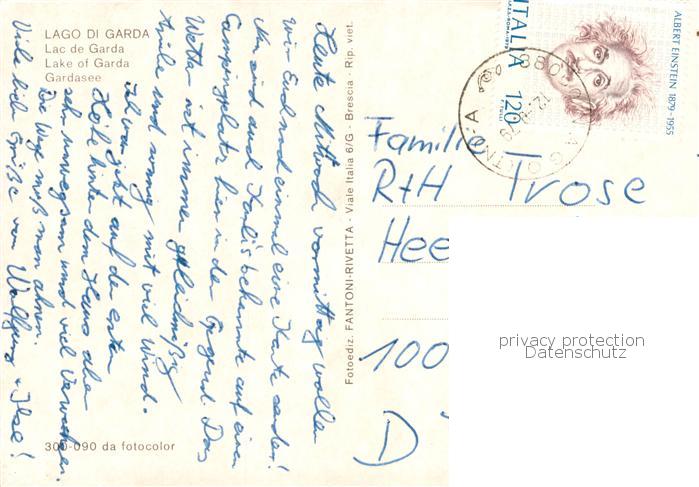 LAGO DI GARDA
Lac de Garda
Lake of Garda
Gardasee
Heute Mittwoch vormittag wollen
wir Euch auch einmal eine Karte senden!
Wir sind auch Karlis bekannte auf einen
Campingplatz hier in der Gegend. Das
Wetter ist immer gleichmäßig
und sonnig mit viel Wind.
Ich war jetzt auf der ersten
Höhe hinter dem Haus aber
sehr unwegsam und viel Verwachsen.
Die Wege muß man ahnen.
Viele liebe Grüße von Wolfgang + Ilse!
300-090 da fotocolor
Fotoediz. FANTONI-RIVETTA - Viale Italia 6/G - Brescia - Rip. viet.
ITALIA 120
ALBERT EINSTEIN 1879-1955
Familie
R+H Trose
Hee
100
D
privacy protection
Datenschutz